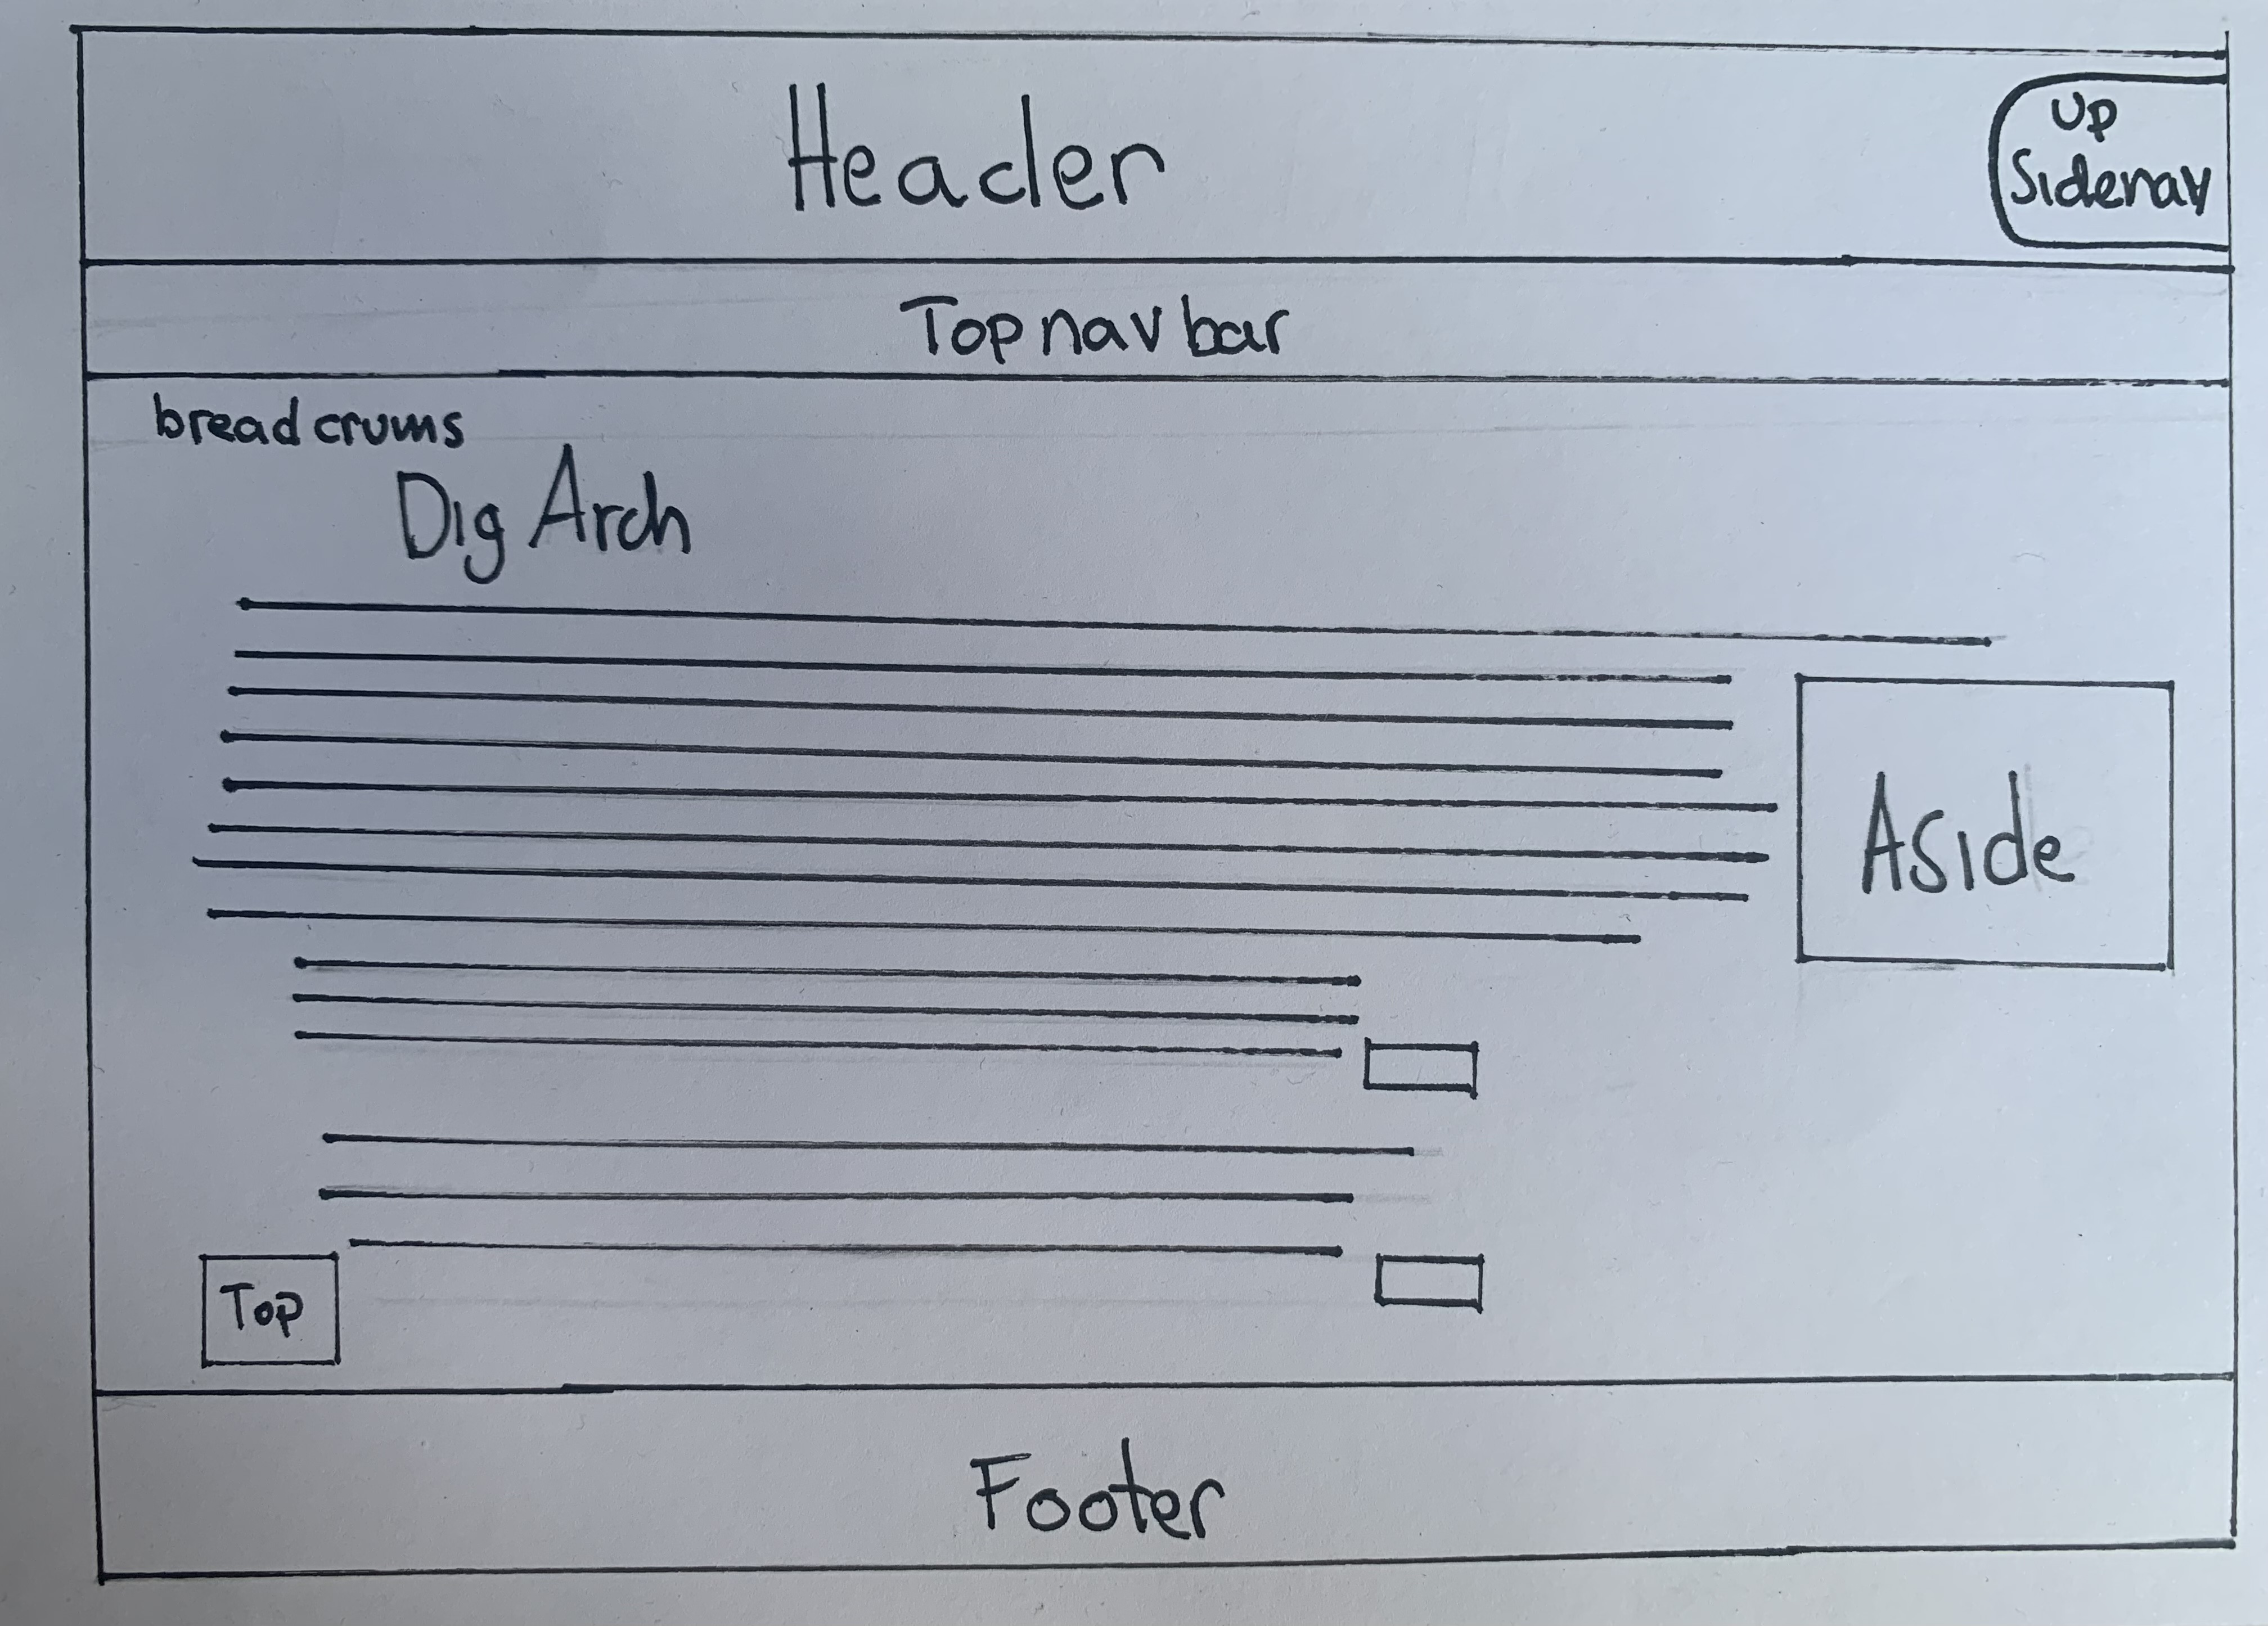 Header
Up
Sidenav
Top nav bar
bread crums
Dig Arch
Aside
Top
Footer